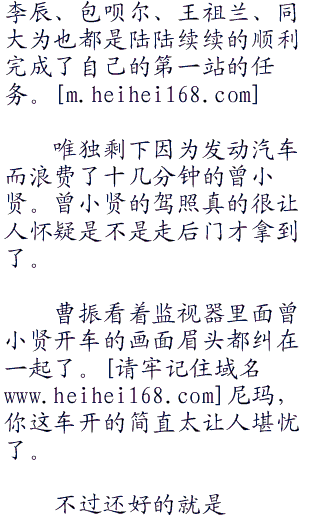 李辰、包呗尔、王祖兰、同
大为也都是陆陆续续的顺利
完成了自己的第一站的任
务。[m.heihei168.com]
唯独剩下因为发动汽车
而浪费了十几分钟的曾小
贤。曾小贤的驾照真的很让
人怀疑是不是走后门才拿到
了。
曹振看着监视器里面曾
小贤开车的画面眉头都纠在
一起了。[请牢记住域名
www.heihei168.com]尼玛，
你这车开的简直太让人堪忧
了。
不过还好的就是